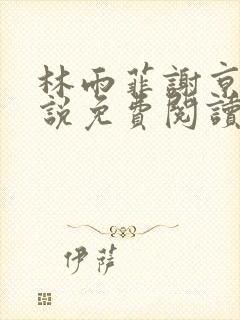 林雨菲謝京
說免費閱讀
伊薩